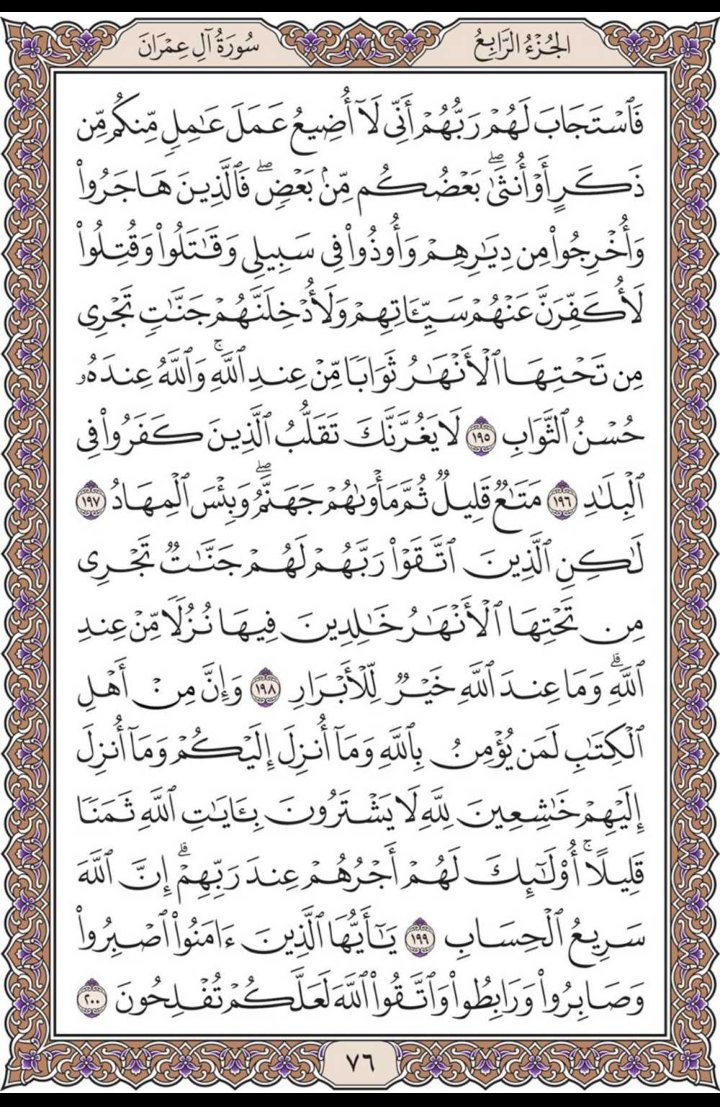 الجُزْءُ الرَّابِعُ
سُورَةُ آلِ عِمْرَانَ
فَٱسْتَجَابَ لَهُمْ رَبُّهُمْ أَنِّي لَآ أُضِيعُ عَمَلَ عَٰمِلٍ مِّنكُم مِّن
ذَكَرٍ أَوْ أُنثَىٰۖ بَعْضُكُم مِّنۢ بَعْضٖۖ فَٱلَّذِينَ هَاجَرُواْ
وَأُخْرِجُواْ مِن دِيَٰرِهِمْ وَأُوذُواْ فِي سَبِيلِي وَقَٰتَلُواْ وَقُتِلُواْ
لَأُكَفِّرَنَّ عَنْهُمْ سَيِّـَٔاتِهِمْ وَلَأُدْخِلَنَّهُمْ جَنَّٰتٖ تَجْرِي
مِن تَحْتِهَا ٱلْأَنْهَٰرُ ثَوَابٗا مِّنْ عِندِ ٱللَّهِۚ وَٱللَّهُ عِندَهُۥ
حُسْنُ ٱلثَّوَابِ ١٩٥ لَا يَغُرَّنَّكَ تَقَلُّبُ ٱلَّذِينَ كَفَرُواْ فِي
ٱلْبِلَٰدِ ١٩٦ مَتَٰعٞ قَلِيلٞ ثُمَّ مَأْوَىٰهُمْ جَهَنَّمُۖ وَبِئْسَ ٱلْمِهَادُ ١٩٧
لَٰكِنِ ٱلَّذِينَ ٱتَّقَوْاْ رَبَّهُمْ لَهُمْ جَنَّٰتٞ تَجْرِي
مِن تَحْتِهَا ٱلْأَنْهَٰرُ خَٰلِدِينَ فِيهَا نُزُلٗا مِّنْ عِندِ
ٱللَّهِۗ وَمَا عِندَ ٱللَّهِ خَيْرٞ لِّلْأَبْرَارِ ١٩٨ وَإِنَّ مِنْ أَهْلِ
ٱلْكِتَٰبِ لَمَن يُؤْمِنُ بِٱللَّهِ وَمَآ أُنزِلَ إِلَيْكُمْ وَمَآ أُنزِلَ
إِلَيْهِمْ خَٰشِعِينَ لِلَّهِ لَا يَشْتَرُونَ بِـَٔايَٰتِ ٱللَّهِ ثَمَنٗا
قَلِيلًاۚ أُوْلَٰٓئِكَ لَهُمْ أَجْرُهُمْ عِندَ رَبِّهِمْۗ إِنَّ ٱللَّهَ
سَرِيعُ ٱلْحِسَابِ ١٩٩ يَٰٓأَيُّهَا ٱلَّذِينَ ءَامَنُواْ ٱصْبِرُواْ
وَصَابِرُواْ وَرَابِطُواْ وَٱتَّقُواْ ٱللَّهَ لَعَلَّكُمْ تُفْلِحُونَ ٢٠٠
٧٦